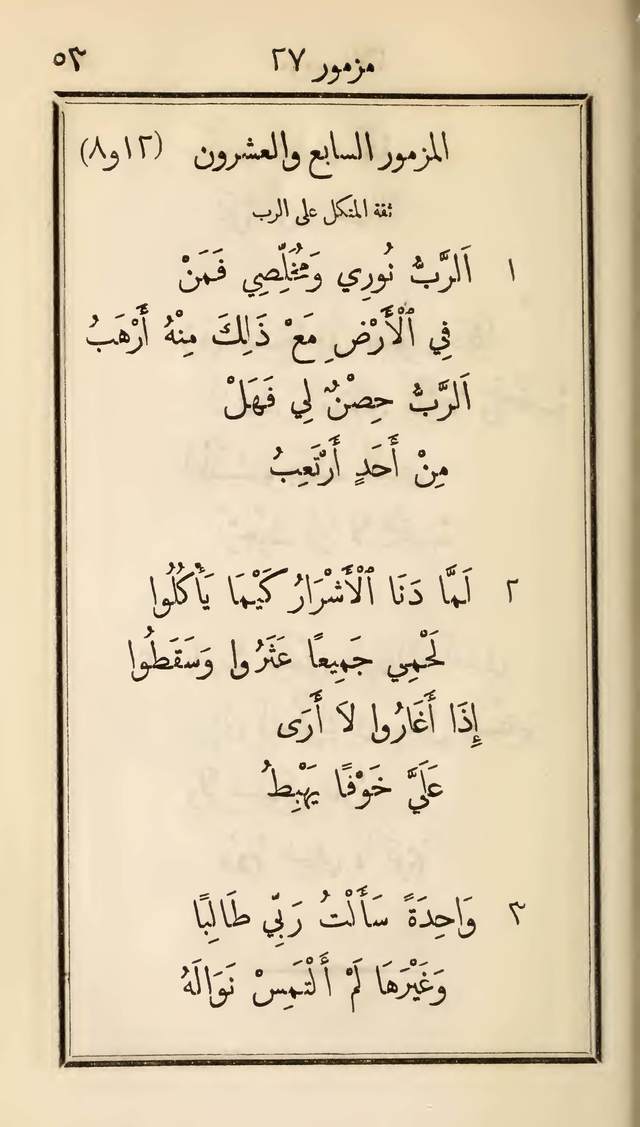 مزمور ٢٧ ٥٣
المزمور السابع والعشرون (١٢و٨)
ثقة المتكل على الرب
١ اَلرَّبُّ نُورِي وَمُخَلِّصِي فَمَنْ
فِي ٱلْأَرْضِ مَعْ ذَلِكَ مِنْهُ أَرْهَبُ
اَلرَّبُّ حِصْنٌ لِي فَهَلْ
مِنْ أَحَدٍ أَرْتَعِبُ
٢ لَمَّا دَنَا ٱلْأَشْرَارُ كَيْمَا يَأْكُلُوا
لَحْمِي جَمِيعًا عَثَرُوا وَسَقَطُوا
إِذَا أَغَارُوا لاَ أَرَى
عَلَيَّ خَوْفًا يَهْبِطُ
٣ وَاحِدَةً سَأَلْتُ رَبِّي طَالِبًا
وَغَيْرَهَا لَمْ أَلْتَمِسْ نَوَالَهُ